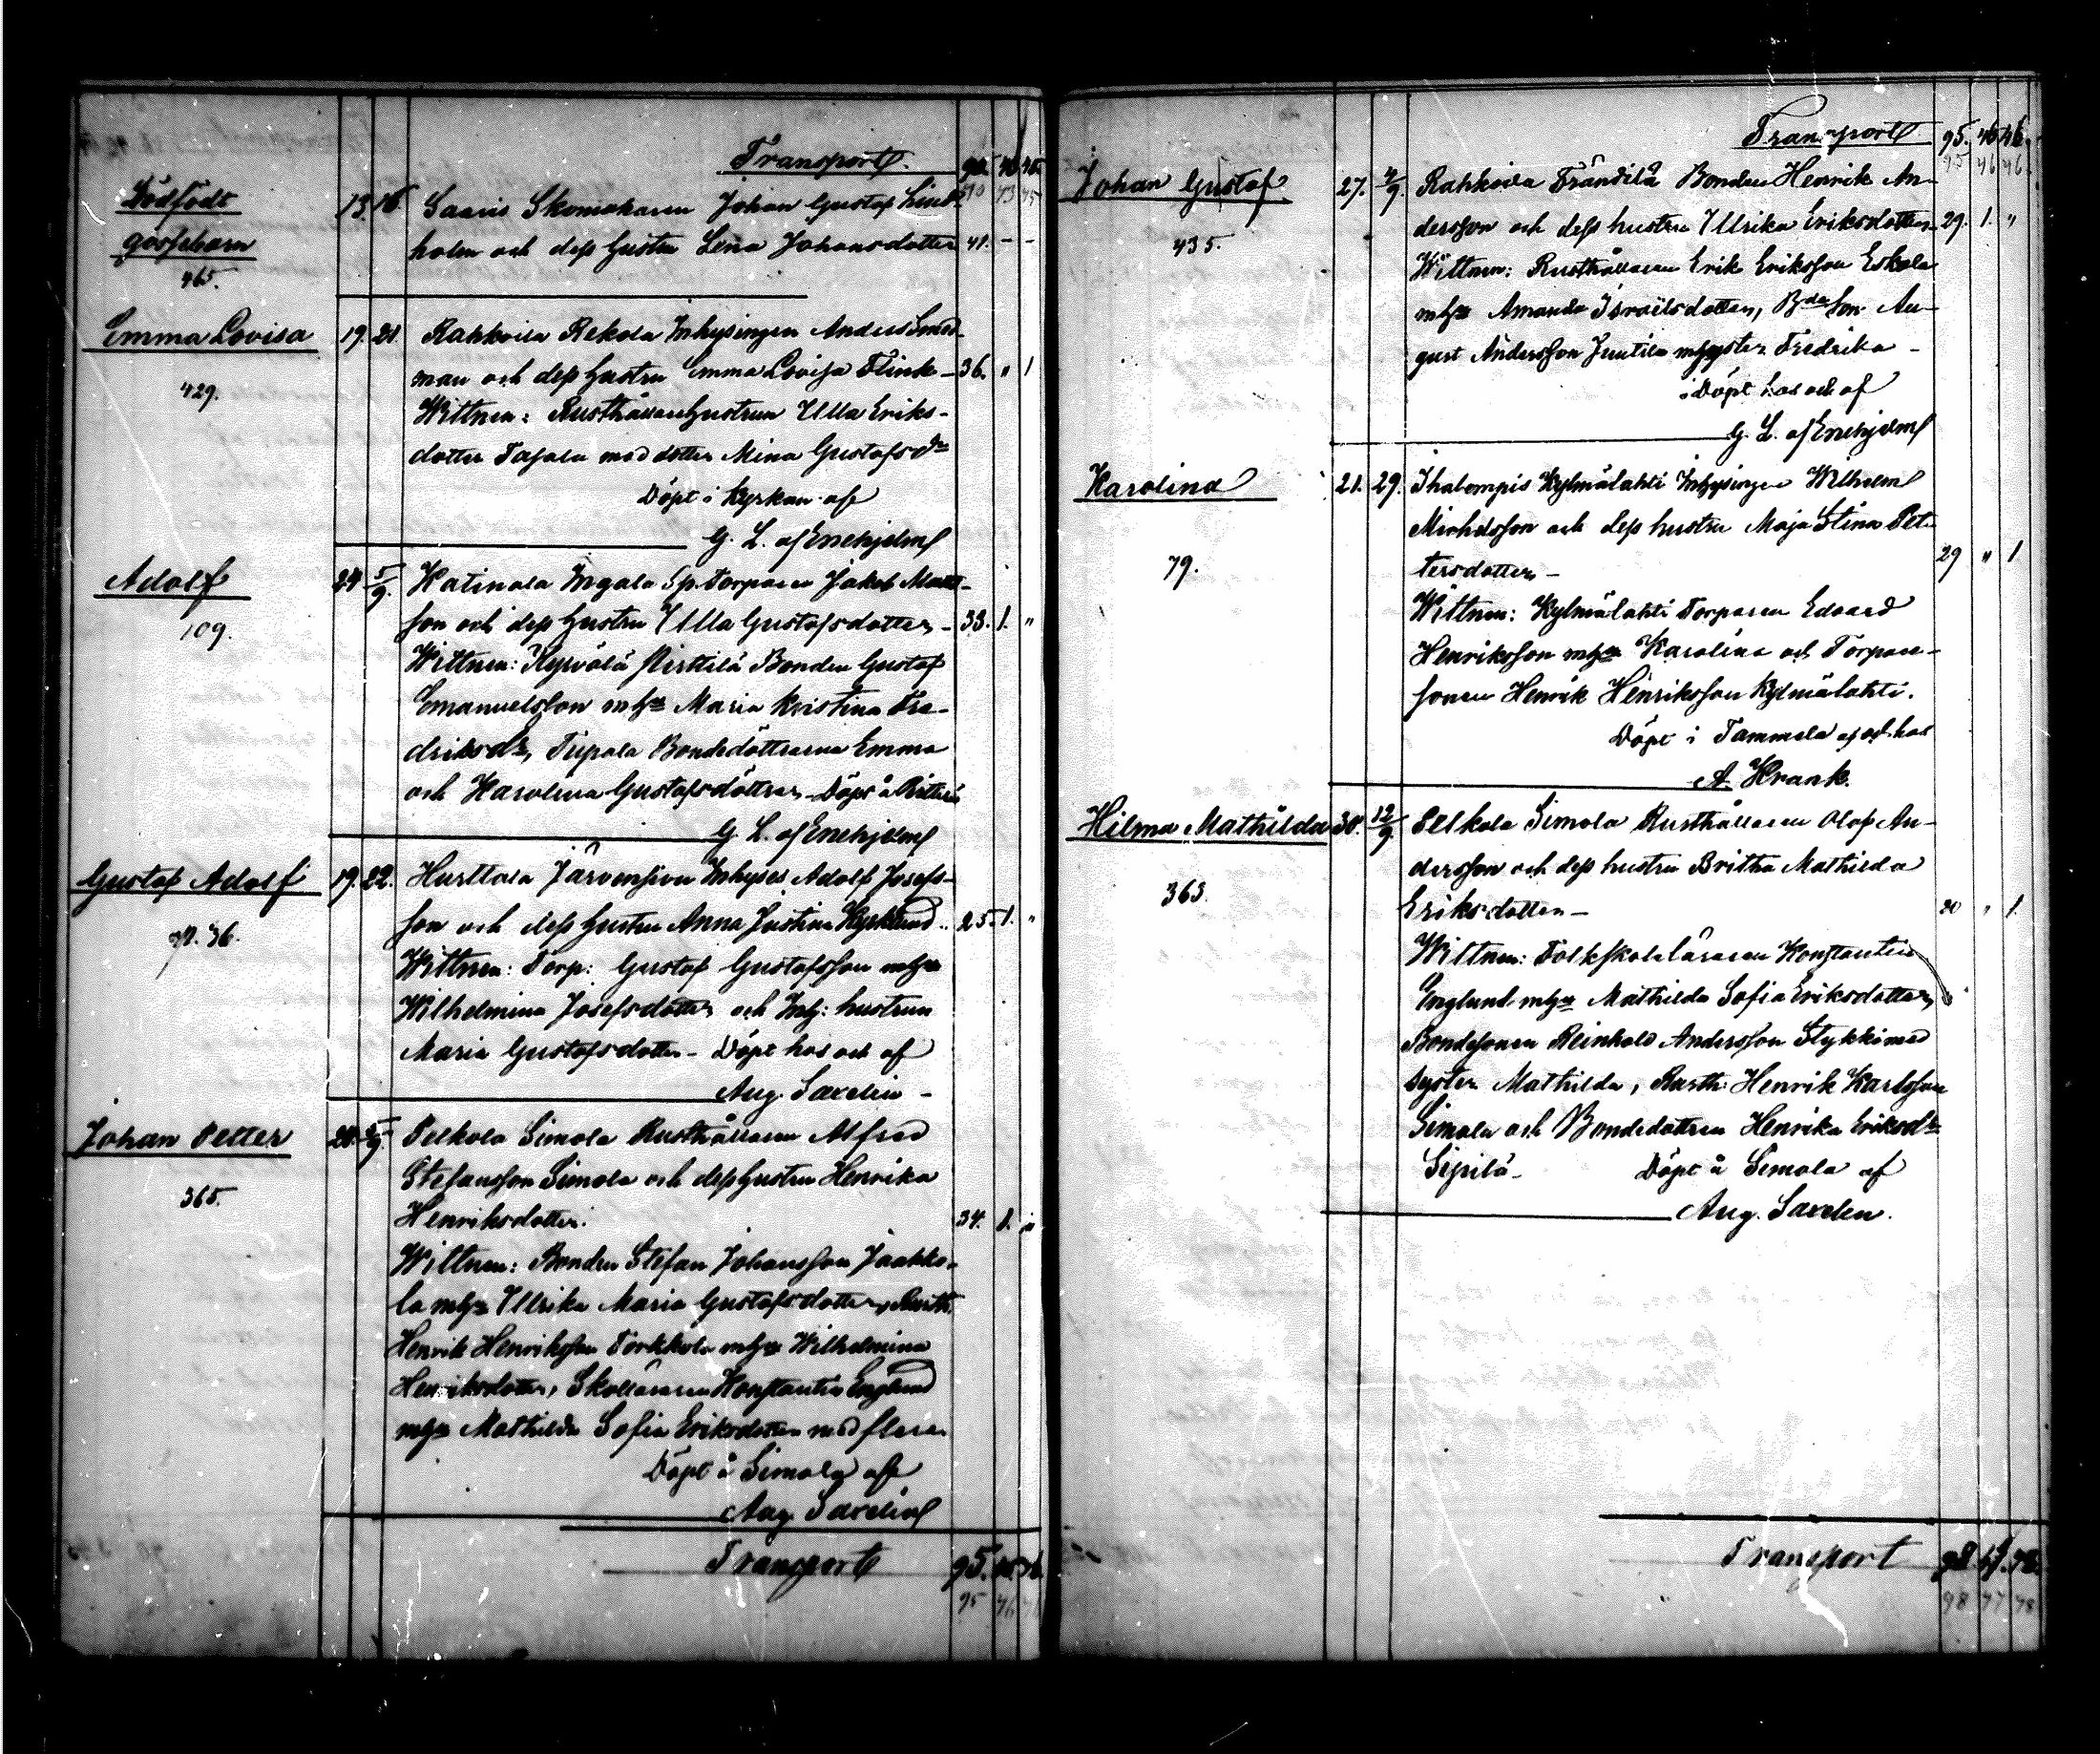 Transport. 90. 43 45.
Dödfödt 13. 16. Saaris Skomakaren Johan Gustaf Lind-
gossebarn holm och dess hustru Lena Johansdotter 41. - -
465.
Emma Lovisa 19. 21. Rahkoila Rekola Inhysingen Anders Lind-
man och dess hustru Emma Lovisa Flink - 36. " 1
429. Wittnen: Rusthållarehustrun Ulla Eriks-
dotter Tajala med dotter Mina Gustafsdr
Döpt i Kyrkan af
G. L. af Enehjelm
Adolf 24. 5/9. Katinala Ingala Sp. Torparen Jakob Matts-
109. son och dess hustru Ulla Gustafsdotter - 33. 1. "
Wittnen: Pirttilä Bonden Gustaf
Emanuelsson mhu Maria Kristina Fre-
driksdr, Tupala Bondedöttrarna Emma
och Karolina Gustafsdöttrar - Döpt å Pirttilä
G. L. af Enehjelm
Gustaf Adolf 19. 22. Hurttala Järvensivu Inhyses Adolf Josefs-
36. son och dess hustru Anna Justina Kyrklund 25. 1. "
Wittnen: Torp: Gustaf Gustafsson mhu
Wilhelmina Josefsdotter och Inh: hustrun
Maria Gustafsdotter - Döpt hos och af
Aug. Saxelin -
Johan Petter 28. 5/9. Pelkola Simola Rusthållaren Alfred
Stefansson Simola och dess hustru Henrika
365. Henriksdotter. 34. 1. "
Wittnen: Bonden Stefan Johansson Jaakko-
la mhu Ullrika Maria Gustafsdotter, Rusth.
Henrik Henriksson Torkkola mhu Wilhelmina
Henriksdotter, Skolläraren Konstantin Englund
mhu Mathilda Sofia Eriksdotter med flera
Döpt å Simola af
Aug. Saxelin
Transport 95. 46. 46.
95 46
Transport 95. 46 46.
95 46 46
Johan Gustaf 27. 4/9. Rahkoila Fränäilä Bonden Henrik An-
dersson och dess hustru Ullrika Eriksdotter - 29. 1. "
435. Wittnen: Rusthållaren Erik Eriksson Eskola
mhu Amanda Israelsdotter, Bdeson Au-
gust Andersson Juutila m syster Fredrika -
Döpt hos och af
G. L. af Enehjelm
Karolina 21. 29. Ihalempis Kylmälahti Inhysingen Wilhelm
Michelsson och dess hustru Maja Stina Pet-
79. tersdotter - 29 " 1.
Wittnen: Kylmälahti Torparen Edvard
Henriksson mhu Karolina och Torpare-
sonen Henrik Henriksson Kylmälahti.
Döpt i Tammela af och hos
A. Krank.
Hilma Mathilda 30. 12/9. Pelkola Simola Rusthållaren Olof An-
dersson och dess hustru Britha Mathilda
363. Eriksdotter - 20 " 1.
Wittnen: Folkskoleläraren Konstantin
Englund mhu Mathilda Sofia Eriksdotter,
Bondesonen Reinhold Andersson Stykki med
syster Mathilda, Rusth: Henrik Karlsson
Simola och Bondedottren Henrika Eriksdr
Sipilä - Döpt å Simola af
Aug. Saxelin.
Transport 98. 47. 48.